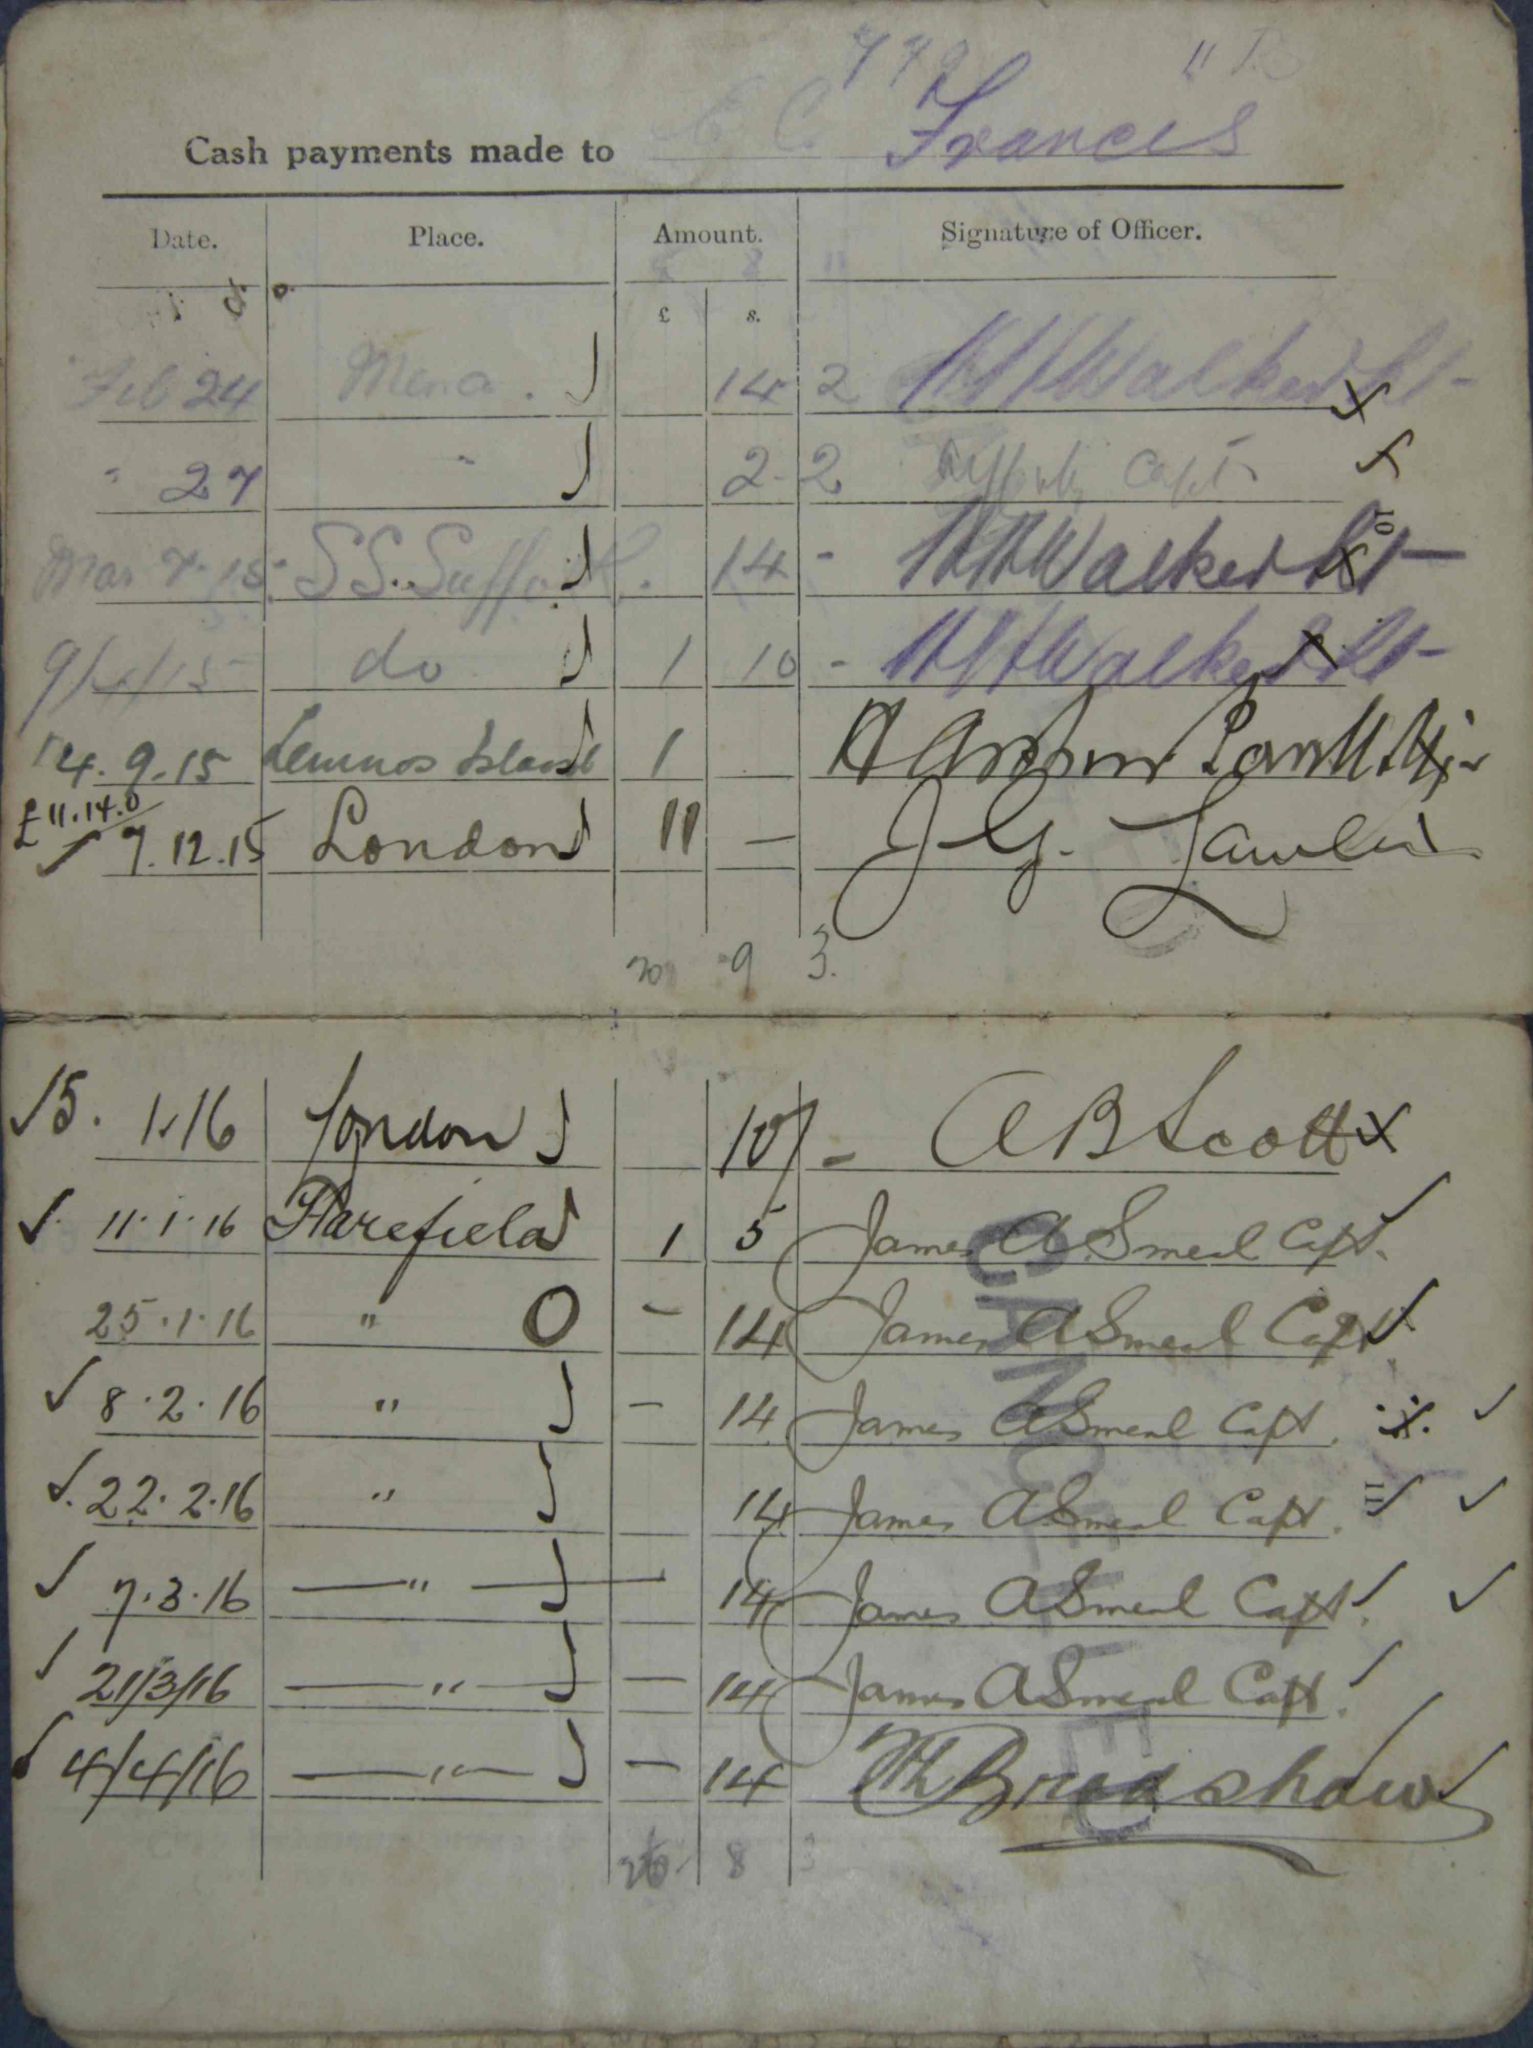 779 11 B
Cash payments made to E C Francis
Date. Place. Amount. Signature of Officer.
£ s.
Feb 24 Mena. 14 2 Walker Lt-
" 27 " 2 2 Capt
Mar 7.15 SS. Suffolk. 14 - Walker Lt-
10
9/4/15 do 1 10 - Walker Lt-
4.9.15 Lemnos Island 1
£11.14.0
7.12.15 London 11 — J. G. Lawler
20 9 3.
5. 1.16 London 10/ - A B Scott
11.1.16 Harefield 1 5 James A Smeal Capt.
25.1.16 " O - 14 James A Smeal Capt.
8.2.16 " - 14 James A Smeal Capt.
22.2.16 " 14 James A Smeal Capt. 11
7.3.16 —"— 14 James A Smeal Capt.
21/3/16 —"— - 14 James A Smeal Capt.
4/4/16 —"— - 14 Bradshaw
26 8 3
CANCELLED